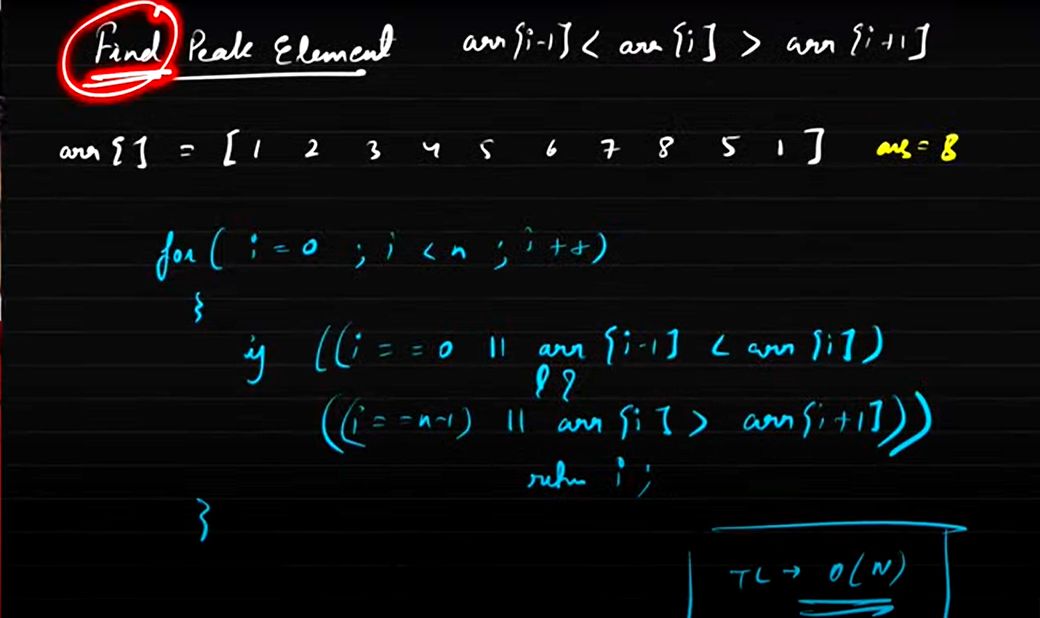 Find Peak Element arr[i-1] < arr[i] > arr[i+1]
arr[] = [1 2 3 4 5 6 7 8 5 1] ans = 8
for( i=0 ; i < n ; i++)
{
if ((i == 0 || arr[i-1] < arr[i])
&&
((i == n-1) || arr[i] > arr[i+1]))
return i;
}
TC → O(N)